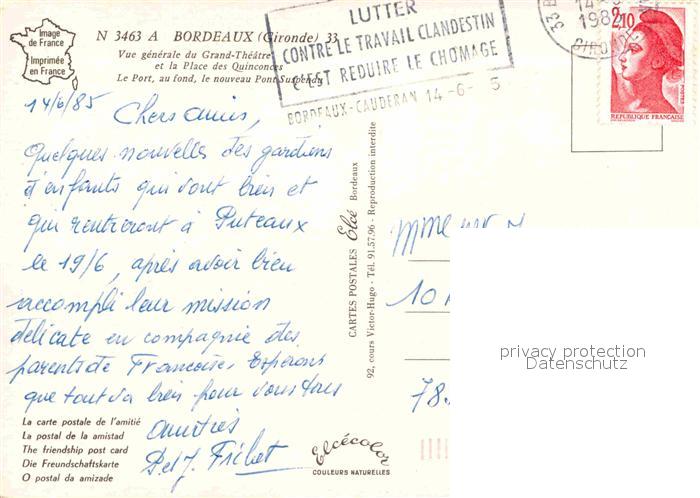 Image
de France
Imprimée
en France
N 3463 A BORDEAUX (Gironde) 33
Vue générale du Grand-Théâtre
et la Place des Quinconces
Le Port, au fond, le nouveau Pont Suspendu
LUTTER
CONTRE LE TRAVAIL CLANDESTIN
C'EST REDUIRE LE CHOMAGE
BORDEAUX-CAUDERAN 14-6- 5
33 B
14-
198
GIRONDE
2,10
POSTES
REPUBLIQUE FRANÇAISE
14/6/85
Chers amis,
Quelques nouvelles des gardiens
d'enfants qui vont bien et
qui rentreront à Puteaux
le 19/6, après avoir bien
accompli leur mission
délicate en compagnie des
parents de Françoise. Espérons
que tout va bien pour vous tous
Amitiés
P et J.
La carte postale de l'amitié
La postal de la amistad
The friendship post card
Die Freundschaftskarte
O postal da amizade
CARTES POSTALES Elcé Bordeaux
92, cours Victor-Hugo - Tél. 91.57.96 - Reproduction interdite
Elcécolor
COULEURS NATURELLES
Mme
10
78
privacy protection
Datenschutz